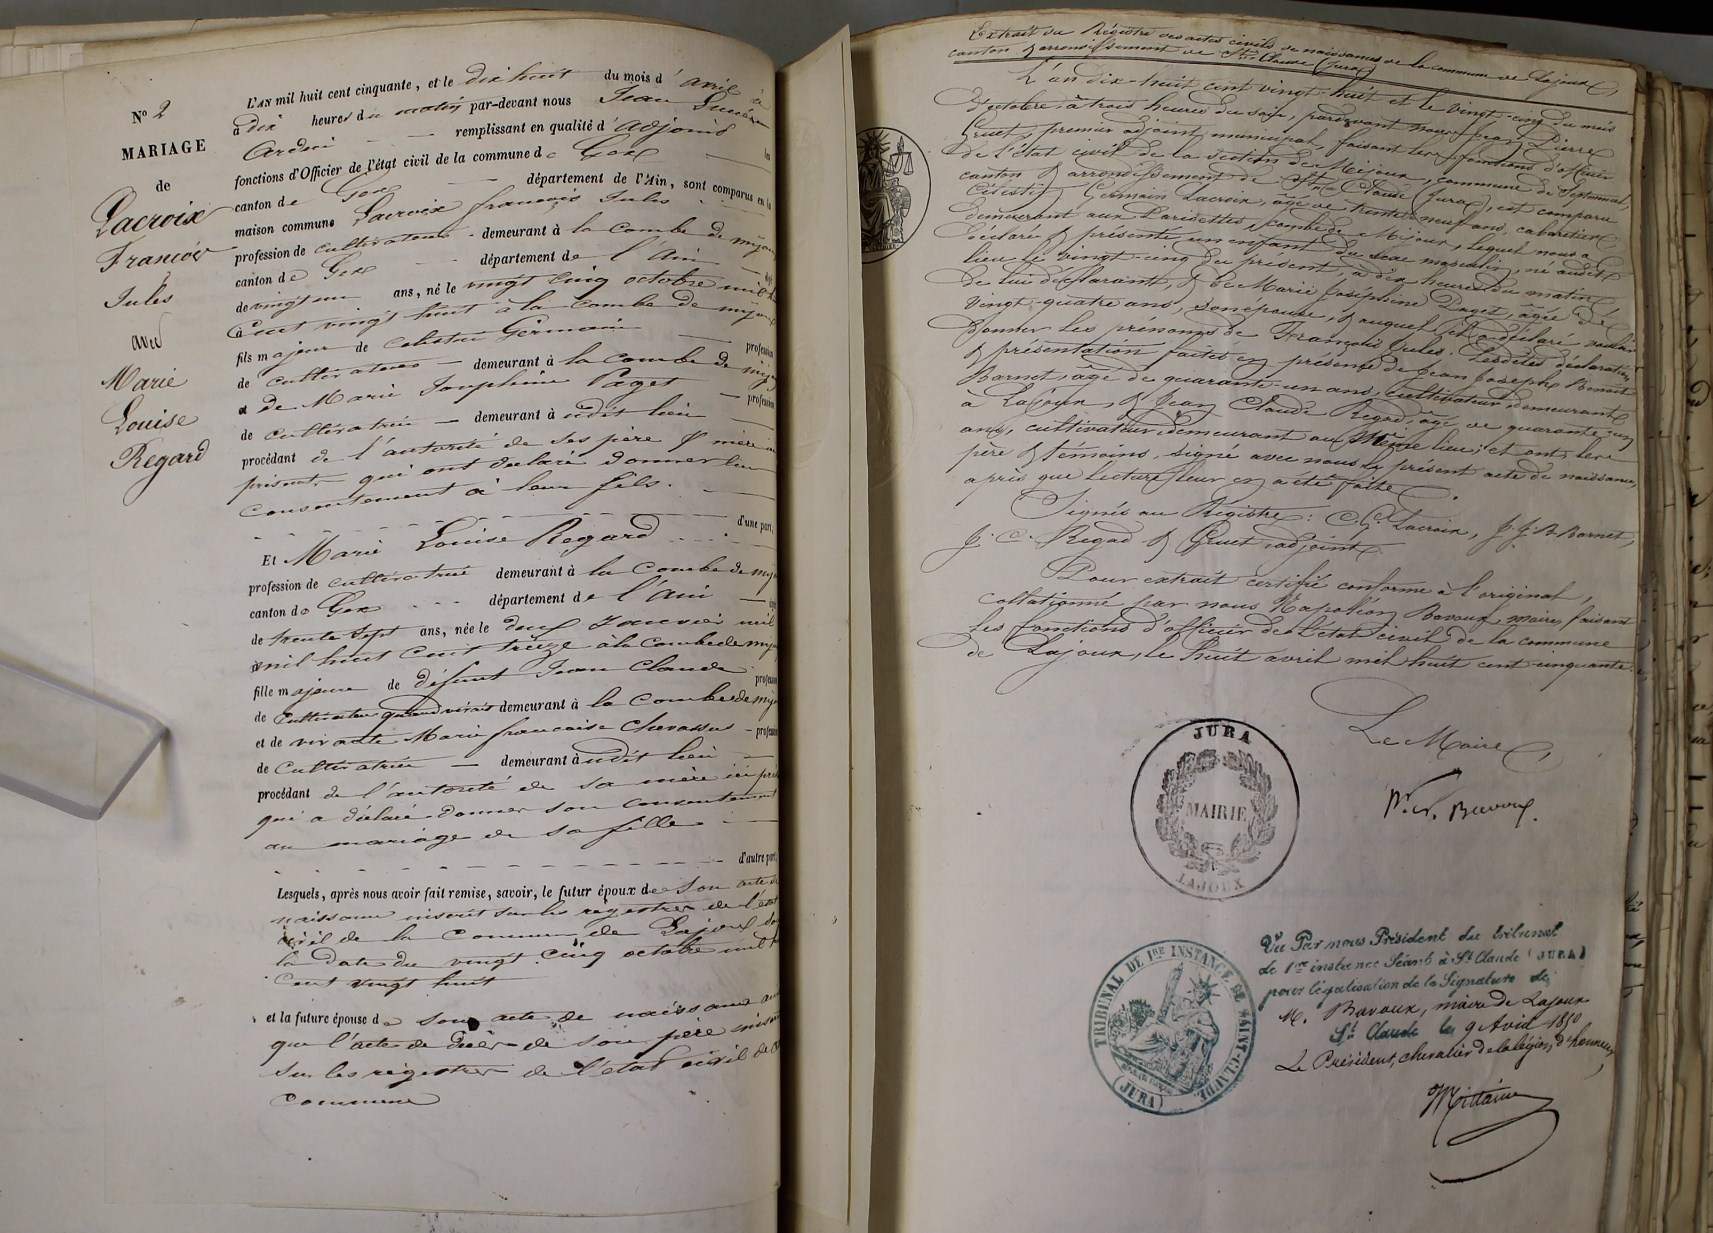 N° 2
MARIAGE
de
Lacroix
François
Jules
avec
Marie
Louise
Regard
L'AN mil huit cent cinquante, et le dix huit du mois d'avril à
à dix heures du matin par-devant nous Jean
remplissant en qualité d'adjoint les
fonctions d'Officier de l'état civil de la commune de Gex
canton de Gex département de l'Ain, sont comparus en la
maison commune Lacroix françois Jules
profession de cultivateur demeurant à la combe de mijoux
canton de Gex département de l'Ain âgé
de vingt un ans, né le vingt cinq octobre mil h
cent vingt huit à la Combe de mijoux
fils majeur de celestin Germain profession
de cultivateur demeurant à la combe de mijoux
et de Marie Josephine Paget profession
de cultivatrice demeurant à udit lieu
procédant de l'autorité de ses père & mère ici
présents qui ont déclaré donner leur
consentement à leur fils.
d'une part,
Et Marie Louise Regard
profession de cultivatrice demeurant à la Combe de mij
canton de Gex département de l'Ain âgée
de trente sept ans, née le deux Janvier mil
mil huit cent treize à la Combe de mij
fille majeure de défunt Jean Claude profession
de cultivateur quand vivait demeurant à la Combe de mij
et de vivante Marie francaise Chevassus profession
de Cultivatrice demeurant à udit lieu
procédant de l'autorité de sa mère ici pré
qui a déclaré donner son consentement
au mariage de sa fille
d'autre part,
Lesquels, après nous avoir fait remise, savoir, le futur époux de son acte de
naissance inscrit sur les registres de l'état
civil de la Commune de Lajoux sous
la date du vingt cinq octobre mil h
Cent vingt huit
et la future épouse de son acte de naissance ainsi
que l'acte de décès de son père inscrit
sur les registres de l'état civil de
commune
Extrait du Régistre des actes civils de naissances de la commune de Lajoux,
canton & arrondissement de St. Claude (Jura)
L'an dix-huit cent vingt-huit et le vingt-cinq du mois
d'octobre à trois heures du soir, pardevant nous Jean Pierre
Gruet, premier adjoint municipal, faisant les fonctions d'officier
de l'état civil de la section de Mijoux, commune de Septmoncel,
canton & arrondissement de St. Claude (Jura), est comparu
Célestin Germain Lacroix, âgé de trente-neuf ans, cabaretier
demeurant aux Larisettes, combe de Mijoux, lequel nous a
déclaré & présenté un enfant du sexe masculin, né audit
lieu le vingt-cinq du présent, à dix heures du matin,
de lui déclarant, & de Marie Joséphine Paget, âgée de
vingt-quatre ans, son épouse, & auquel il a déclaré vouloir
donner les prénoms de François Jules. Lesdites déclaration
& présentation faites en présence de Jean Joseph Benoît
Barnet, âgé de quarante-un ans, cultivateur demeurant
à Lajoux, & Jean Claude Regad, âgé de quarante-cinq
ans, cultivateur, demeurant au Même lieu; et ont les
père & témoins, signé avec nous le présent acte de naissance,
après que lecture leur en a été faite.
Signés au Registre: C. G. Lacroix, J. J. B. Barnet,
J. C. Regad & Gruet, adjoint.
Pour extrait certifié conforme à l'original,
collationné par nous Napoléon Bavoux, maire, faisant
les fonctions d'officier de l'état civil de la commune
de Lajoux, le huit avril mil huit cent cinquante.
Le Maire,
JURA
MAIRIE
LAJOUX
Vu Par nous Président du tribunal
de 1re instance Séant à St Claude (JURA)
pour légalisation de la Signature de
M. Bavoux, maire de Lajoux
St Claude le 9 Avril 1850
Le Président, chevalier de la légion d'honneur,
TRIBUNAL DE 1RE INSTANCE DE SAINT-CLAUDE.
(JURA)